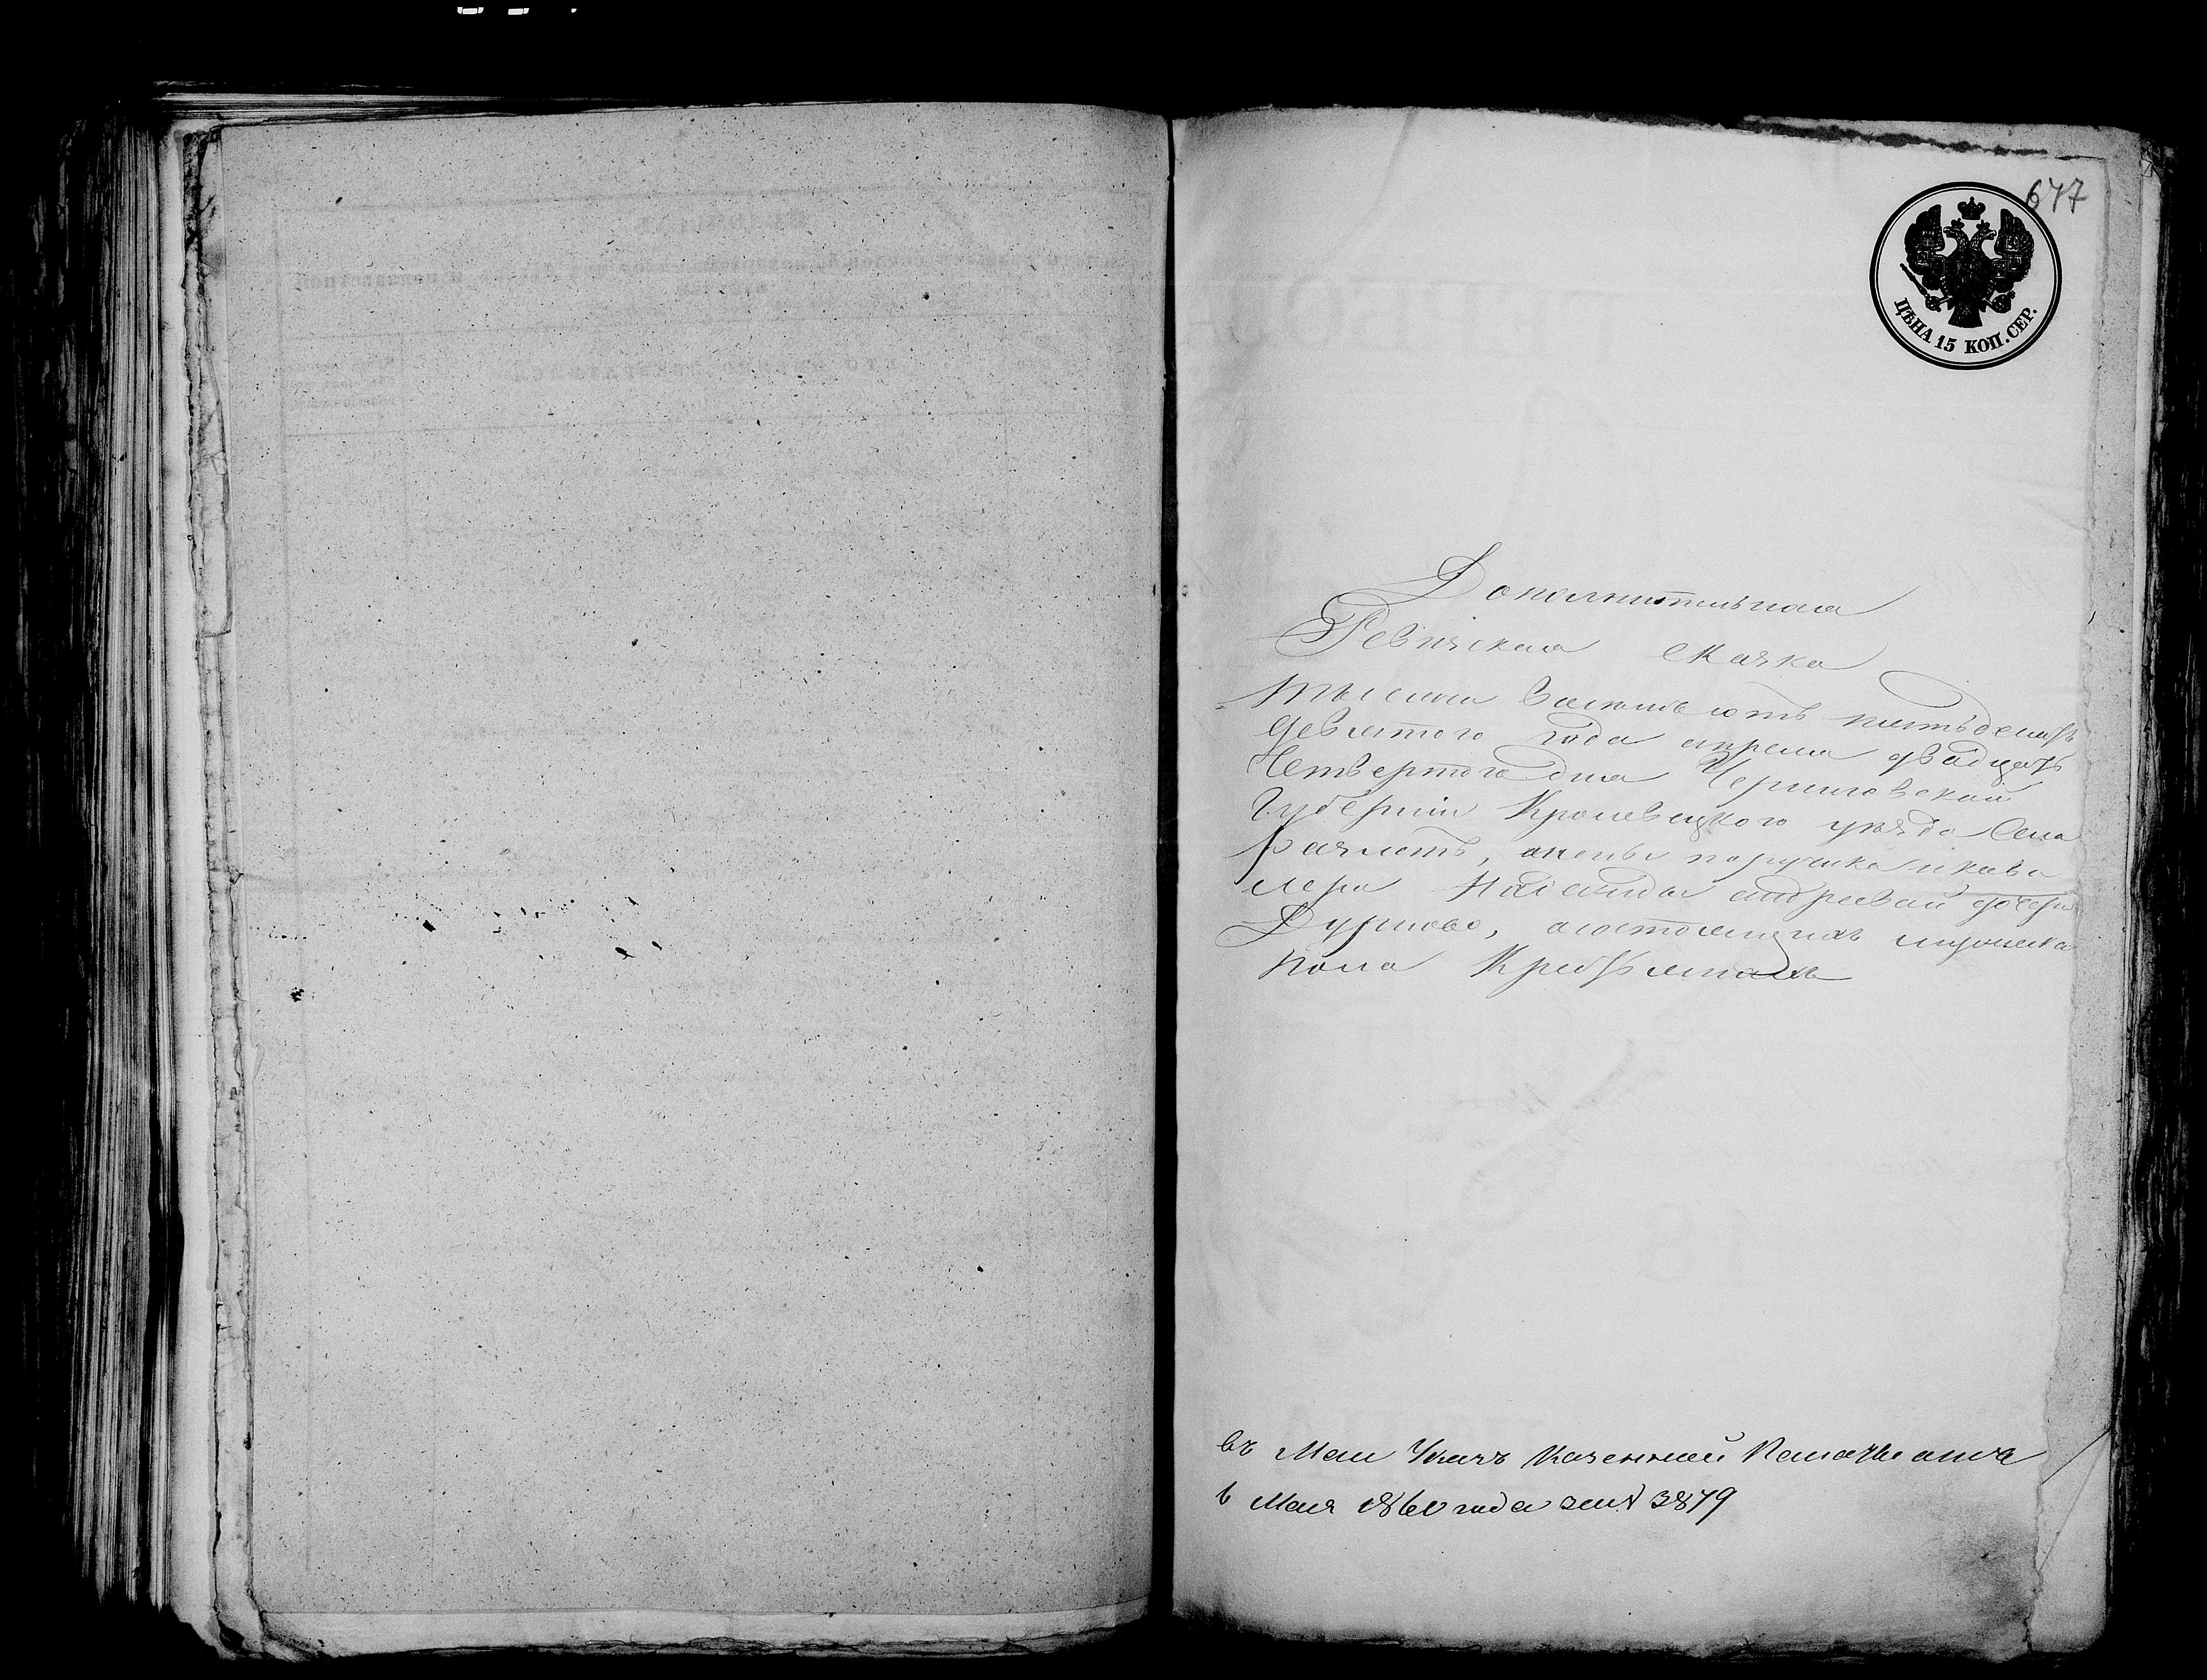 677
ЦѢНА 15 КОП. СЕР.
Дополнительная
Ревизская Сказка
Тысяча восемьсотъ пятьдесятъ
девятого года апреля двадцать
Четвертого дня Черниговской
Губерніи Кролевецкого уѣзда Села
поручика и кава
лера андреевой дочери
Дурново, а состоящихъ
пола Крестьянахъ
въ Указъ Казенной Палаты отъ
6 Мая 1860 года за № 3879